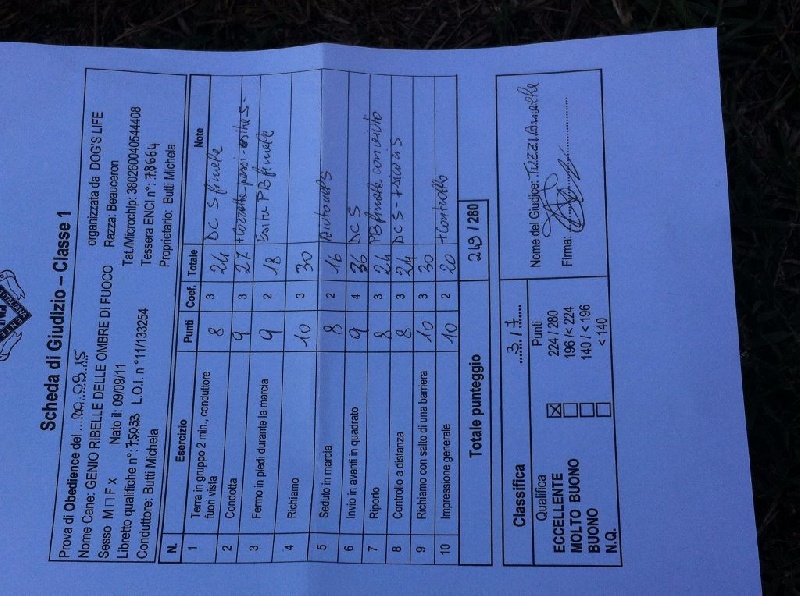 Scheda di Giudizio – Classe 1
Prova di Obedience del organizzata da DOG'S LIFE
Nome Cane: GENIO RIBELLE DELLE OMBRE DI FUOCO Razza: Beauceron
Sesso M F X Nato il: 09/09/11 Tat./Microchip: 380260040544408
Libretto qualifiche n°: 75033 L.O.I. n°11/133254 Tessera ENCI n°: 78664
Conduttore: Butti Michela Proprietario: Butti Michela
N. Esercizio Punti Coef. Totale Note
1 Terra in gruppo 2 min., conduttore fuori vista 8 3 24 DC S finale
2 Condotta 9 3 27
3 Fermo in piedi durante la marcia 9 2 18 PB finale
4 Richiamo 10 3 30
5 Seduto in marcia 8 2 16
6 Invio in avanti in quadrato 9 4 36 DC S
7 Riporto 8 3 24 PB finale
8 Controllo a distanza 8 3 24 DC S -
9 Richiamo con salto di una barriera 10 3 30
10 Impressione generale 10 2 20 + Controllo
Totale punteggio 249 / 280
Classifica 3/7
Qualifica Punti
ECCELLENTE 224 / 280
MOLTO BUONO 196 / < 224
BUONO 140 / < 196
N.Q. < 140
Nome del Giudice:
Firma: